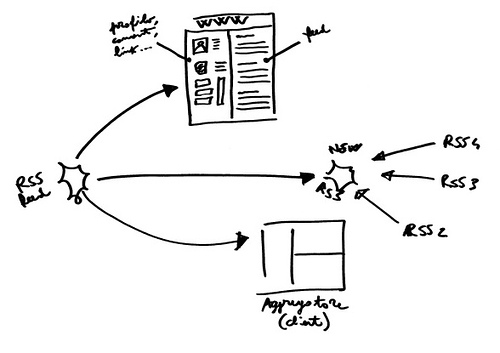 profilo,
commenti,
link...
WWW
feed
RSS
feed
NEW
RSS
RSS4
RSS3
RSS2
Aggregatore
(client)